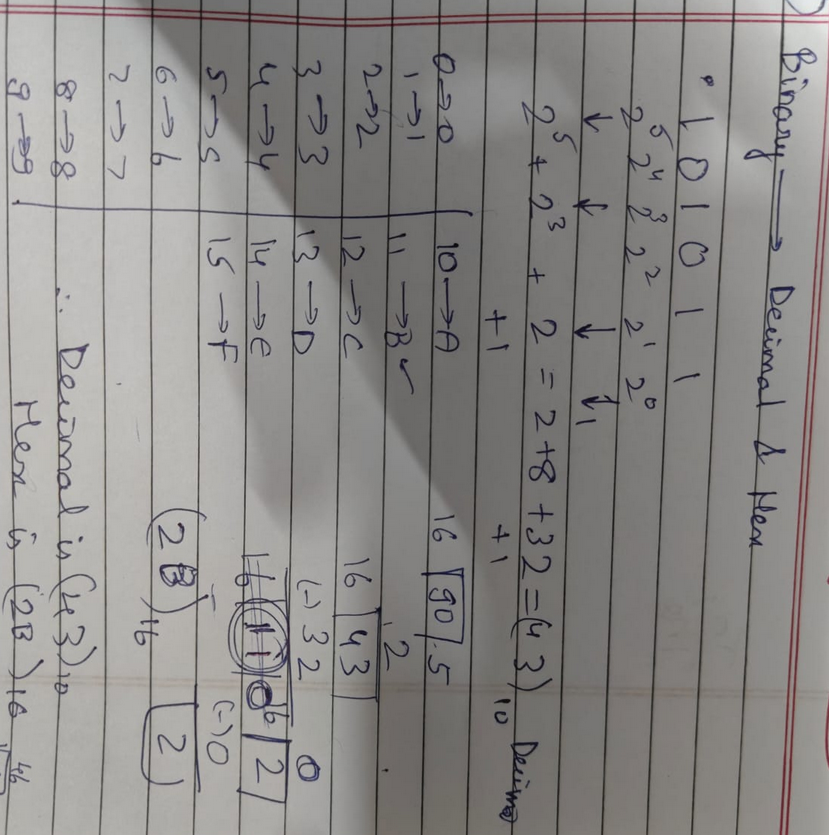 Binary → Decimal & Hex
• 1 0 1 0 1 1
2⁵ 2⁴ 2³ 2² 2¹ 2⁰
↓ ↓ ↓ ↓1
2⁵ + 2³ + 2 = 2 + 8 + 32 = (43)10
+1 +1
0→0
1→1
2→2
3→3
4→4
5→5
6→6
7→7
8→8
9→9
10→A
11→B✓
12→C
13→D
14→E
15→F
16 90 5
2
16 43
(-) 32 0
16 2
(-) 0
2
(2B)16
∴ Decimal is (43)10
Hex is (2B)16